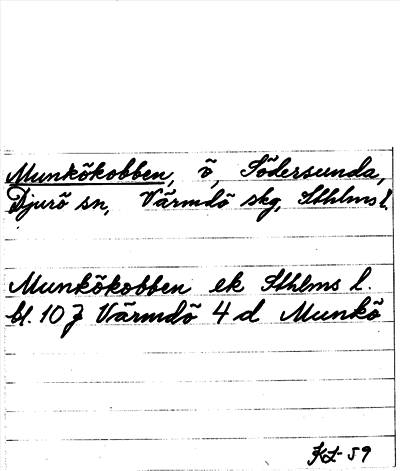 Munkökobben, ö, Södersunda,
Djurö sn, Värmdö skg, Sthlms l.
Munkökobben ek Sthlms l.
bl. 10 J Värmdö 4 d Munkö
KL-59